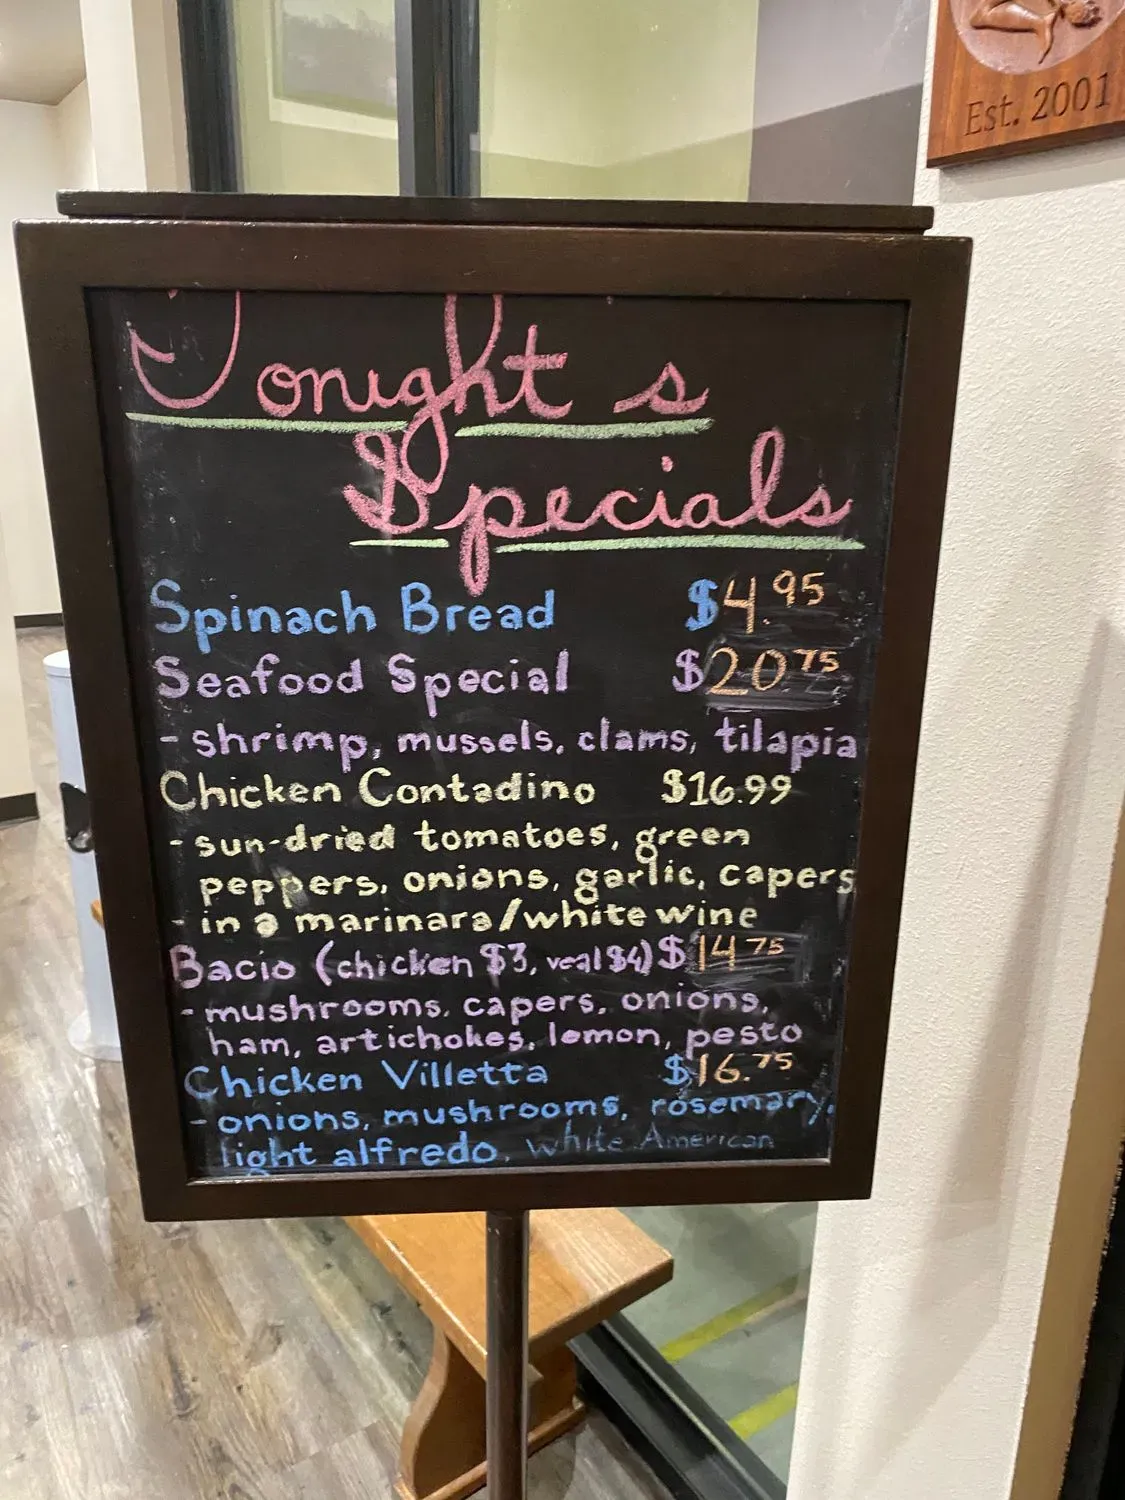 Est. 2001
Tonight s
Specials
Spinach Bread $4.95
Seafood Special $20.75
- shrimp, mussels, clams, tilapia
Chicken Contadino $16.99
- sun-dried tomatoes, green
peppers, onions, garlic, capers
- in a marinara/white wine
Bacio (chicken $3, veal $4) $14.75
- mushrooms, capers, onions,
ham, artichokes, lemon, pesto
Chicken Villetta $16.75
- onions, mushrooms, rosemary,
light alfredo, white American